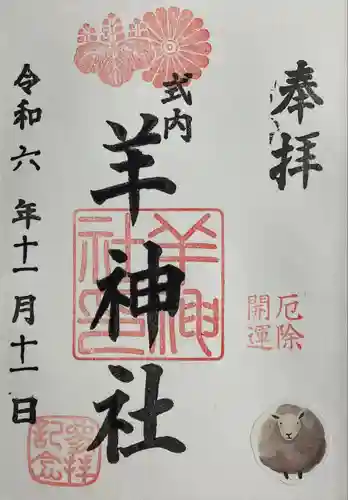 奉拝
厄除
開運
式内
羊神社
羊神社印
令和六年十一月十一日
参拝
記念